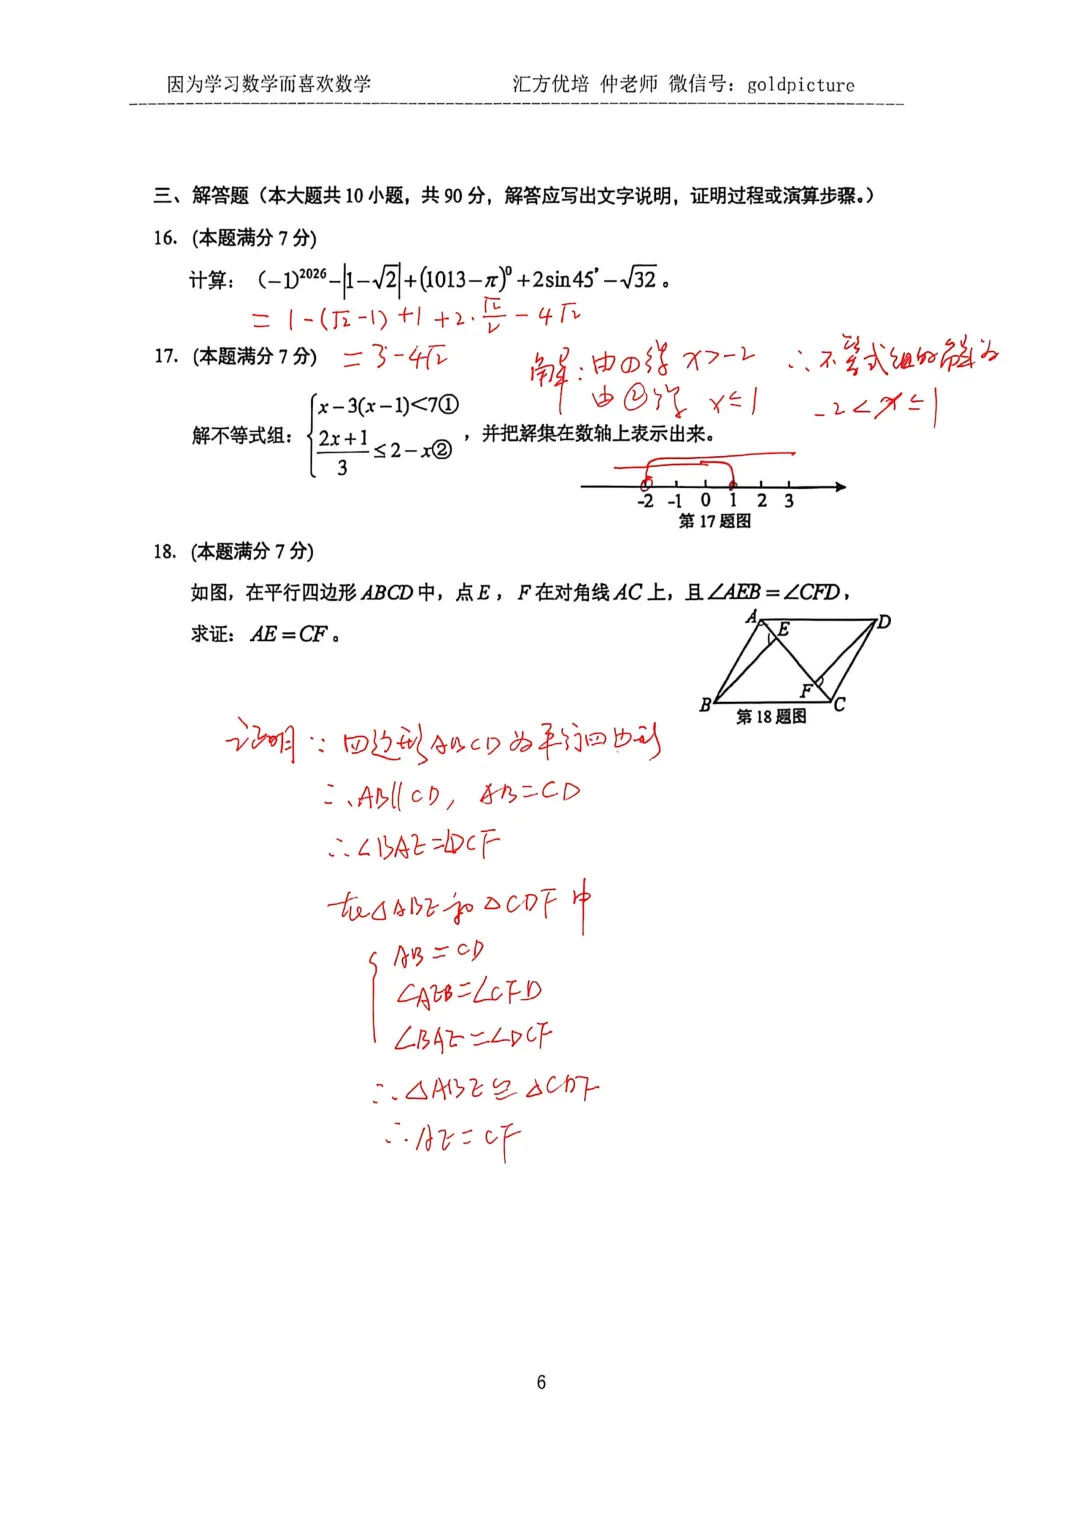 因为学习数学而喜欢数学 汇方优培 仲老师 微信号：goldpicture
三、解答题（本大题共 10 小题，共 90 分，解答应写出文字说明，证明过程或演算步骤。）
16. (本题满分 7 分)
计算：(−1)²⁰²⁶−|1−√2|+(1013−π)⁰+2sin45°−√32。
= 1−(√2−1)+1+2·√2/2−4√2
17. (本题满分 7 分) = 3−4√2
解：由①得 x>−2 ∴不等式组的解为
由②得 x≤1 −2<x≤1
解不等式组：{x−3(x−1)<7① (2x+1)/3≤2−x②，并把解集在数轴上表示出来。
-2 -1 0 1 2 3
第 17 题图
18. (本题满分 7 分)
如图，在平行四边形 ABCD 中，点 E，F 在对角线 AC 上，且∠AEB=∠CFD，
求证：AE=CF。
A E D
B F C
第 18 题图
证明∵四边形ABCD为平行四边形
∴AB∥CD，AB=CD
∴∠BAE=∠DCF
在△ABE和△CDF中
{AB=CD
∠AEB=∠CFD
∠BAE=∠DCF
∴△ABE≌△CDF
∴AE=CF
6